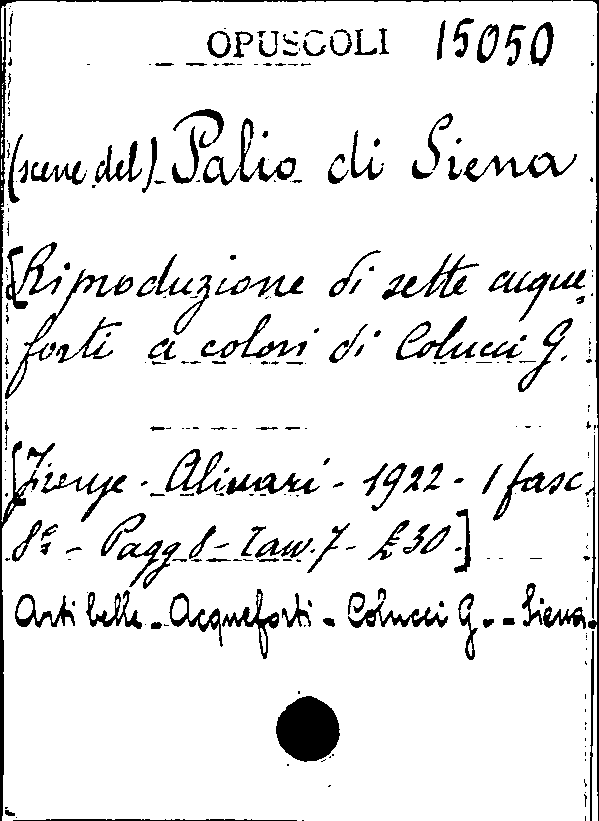 OPUSCOLI 15050
(scene del) Palio di Siena
[Riproduzione di sette acque,
forti a colori di Colucci G.
[Firenze - Alinari - 1922 - 1 fasc.
8º - Pagg 8 - Tav. 7 - £ 30.]
Arti belle - Acqueforti - Colucci G. - Siena.